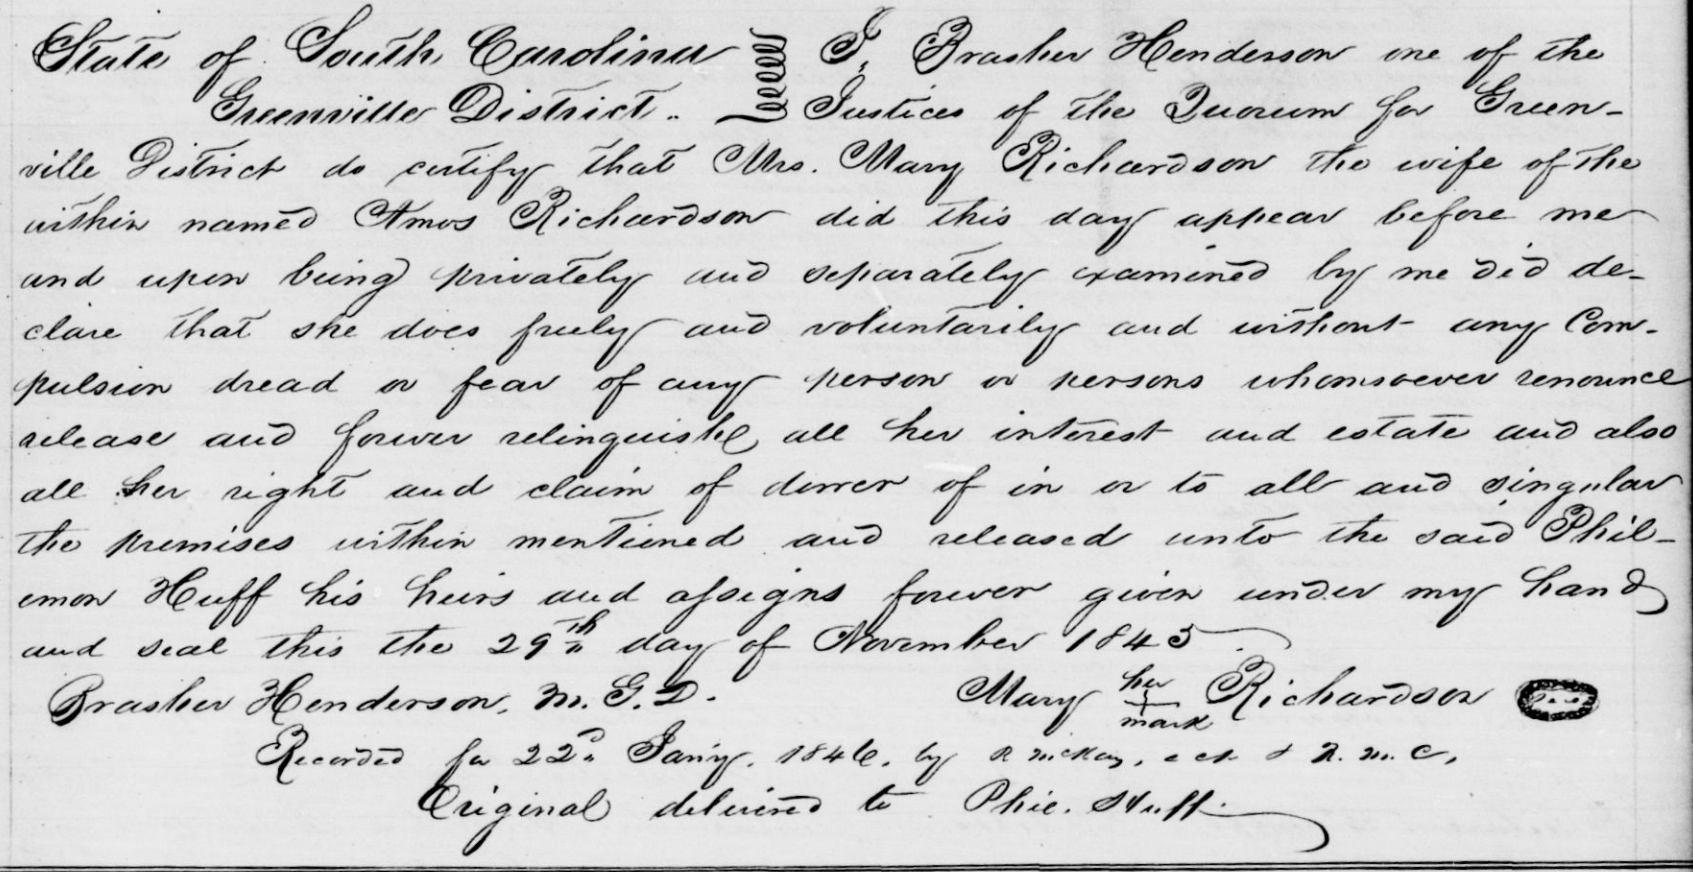 State of South Carolina I, Brasher Henderson one of the
Greenville District. Justices of the Quorum for Green-
ville District do certify that Mrs. Mary Richardson the wife of the
within named Amos Richardson did this day appear before me
and upon being privately and separately examined by me did de-
clare that she does freely and voluntarily and without any Com-
pulsion dread or fear of any person or persons whomsoever renounce
release and forever relinquish all her interest and estate and also
all her right and claim of dower of in or to all and singular
the premises within mentioned and released unto the said Phil-
emon Huff his heirs and assigns forever given under my hand
and seal this the 29th day of November 1845
Brasher Henderson, M. G. D. Mary her mark Richardson
Recorded for 22d Jan'y. 1846. by R McKay, & R. M. C,
Original delivered to Phil. Huff.